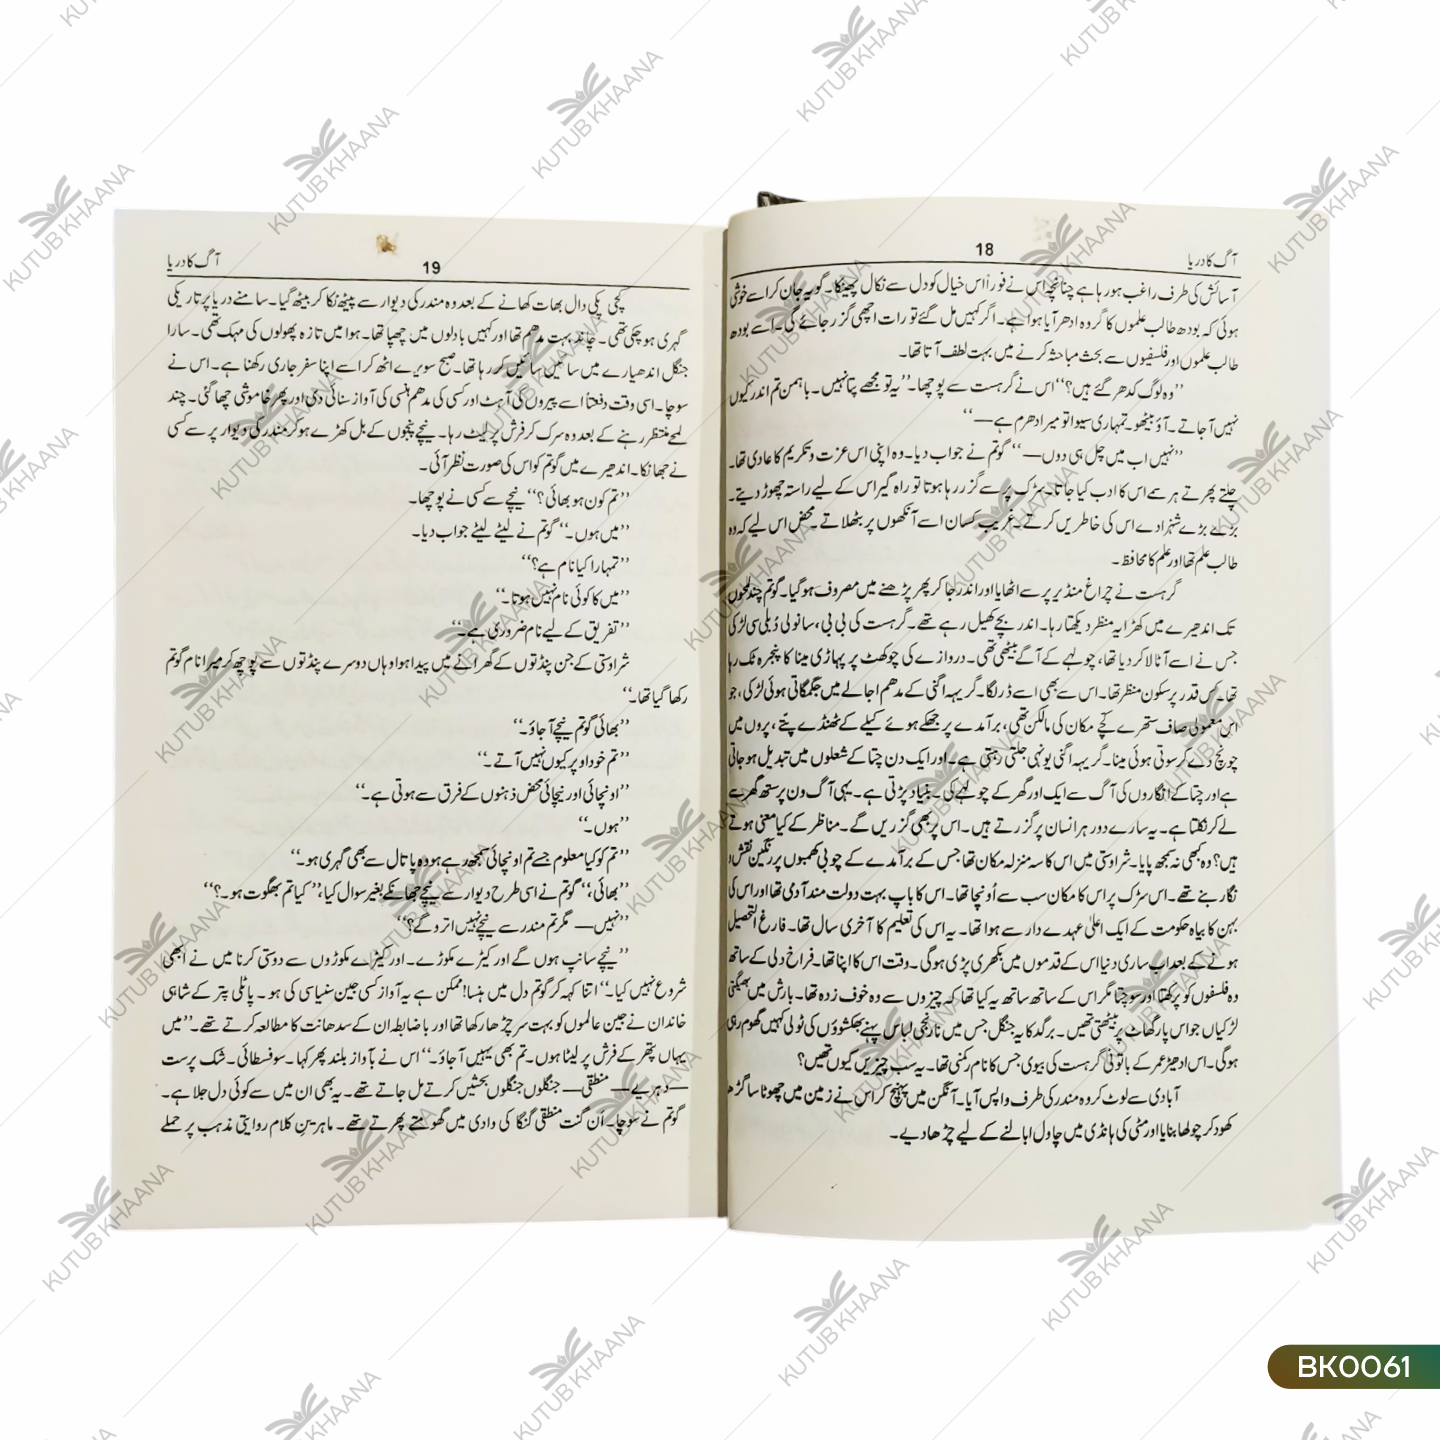 آگ کا دریا
18
آسائش کی طرف راغب ہو رہا ہے چنانچہ اس نے فوراً اس خیال کو دل سے نکال پھینکا۔ گو یہ جان کر اسے خوشی
ہوئی کہ بودھ طالب علموں کا گروہ ادھر آیا ہوا ہے۔ اگر کہیں مل گئے تو رات اچھی گزر جائے گی۔ اسے بودھ
طالب علموں اور فلسفیوں سے بحث مباحثہ کرنے میں بہت لطف آتا تھا۔
’’وہ لوگ کدھر گئے ہیں؟‘‘ اس نے گرہست سے پوچھا۔ ’’یہ تو مجھے پتا نہیں۔ باہمن تم اندر کیوں
نہیں آ جاتے۔ آؤ بیٹھو۔ تمہاری سیوا تو میرا دھرم ہے—‘‘
’’نہیں اب میں چل ہی دوں—‘‘ گوتم نے جواب دیا۔ وہ اپنی اس عزت و تکریم کا عادی تھا۔
چلتے پھرتے ہر سمے اس کا ادب کیا جاتا۔ سڑک پر سے گزر رہا ہوتا تو راہ گیر اس کے لیے راستہ چھوڑ دیتے۔
بڑے بڑے شہزادے اس کی خاطریں کرتے۔ غریب کسان اسے آنکھوں پر بٹھلاتے۔ محض اس لیے کہ وہ
طالب علم تھا اور علم کا محافظ۔
گرہست نے چراغ منڈیر پر سے اٹھایا اور اندر جا کر پھر پڑھنے میں مصروف ہو گیا۔ گوتم چند لمحوں
تک اندھیرے میں کھڑا یہ منظر دیکھتا رہا۔ اندر بچے کھیل رہے تھے۔ گرہست کی بی بی، سانولی دُبلی سی لڑکی
جس نے اسے آٹا لا کر دیا تھا، چولہے کے آگے بیٹھی تھی۔ دروازے کی چوکھٹ پر پہاڑی مینا کا پنجرہ ٹک رہا
تھا۔ کس قدر پر سکون منظر تھا۔ اس سے بھی اسے ڈر لگا۔ گریہہ اگنی کے مدھم اجالے میں جگمگاتی ہوئی لڑکی، جو
اس معمولی صاف ستھرے کچے مکان کی مالکن تھی، برآمدے پر جھکے ہوئے کیلے کے ٹھنڈے پتے، پروں میں
چونچ دے کر سوتی ہوئی مینا۔ گریہہ اگنی یونہی جلتی رہتی ہے۔ اور ایک دن چتا کے شعلوں میں تبدیل ہو جاتی
ہے اور چتا کے انگاروں کی آگ سے ایک اور گھر کے چولہے کی۔ بنیاد پڑتی ہے۔ یہی آگ ون پرستھ گھر سے
لے کر نکلتا ہے۔ یہ سارے دور ہر انسان پر گزرتے ہیں۔ اس پر بھی گزریں گے۔ مناظر کے کیا معنی ہوتے
ہیں؟ وہ کبھی نہ سمجھ پایا۔ شراوستی میں اس کا سہ منزلہ مکان تھا جس کے برآمدے کے چوبی کھمبوں پر رنگین نقش و
نگار بنے تھے۔ اس سڑک پر اس کا مکان سب سے اُونچا تھا۔ اس کا باپ بہت دولت مند آدمی تھا اور اس کی
بہن کا بیاہ حکومت کے ایک اعلیٰ عہدے دار سے ہوا تھا۔ یہ اس کی تعلیم کا آخری سال تھا۔ فارغ التحصیل
ہونے کے بعد اب ساری دنیا اس کے قدموں میں بکھری پڑی ہو گی۔ وقت اس کا اپنا تھا۔ فراخ دلی کے ساتھ
وہ فلسفوں کو پرکھتا اور سوچتا مگر اس کے ساتھ ساتھ یہ کیا تھا کہ چیزوں سے وہ خوف زدہ تھا۔ بارش میں بھیگتی
لڑکیاں جو اس پار گھاٹ پر بیٹھتی تھیں۔ برگد کا یہ جنگل جس میں نارنجی لباس پہنے بھکشوؤں کی ٹولی کہیں گھوم رہی
ہو گی۔ اس ادھیڑ عمر کے باتونی گرہست کی بیوی جس کا نام رکمنی تھا۔ یہ سب چیزیں کیوں تھیں؟
آبادی سے لوٹ کر وہ مندر کی طرف واپس آیا۔ آنگن میں پہنچ کر اس نے زمین میں چھوٹا سا گڑھا
کھود کر چولھا بنایا اور مٹی کی ہانڈی میں چاول ابالنے کے لیے چڑھا دیے۔
19
آگ کا دریا
کچی پکی دال بھات کھانے کے بعد وہ مندر کی دیوار سے پیٹھ ٹکا کر بیٹھ گیا۔ سامنے دریا پر تاریکی
گہری ہو چکی تھی۔ چاند بہت مدھم تھا اور کہیں بادلوں میں چھپا تھا۔ ہوا میں تازہ پھولوں کی مہک تھی۔ سارا
جنگل اندھیارے میں سائیں سائیں کر رہا تھا۔ صبح سویرے اٹھ کر اسے اپنا سفر جاری رکھنا ہے۔ اس نے
سوچا۔ اسی وقت دفعتاً اسے پیروں کی آہٹ اور کسی کی مدھم ہنسی کی آواز سنائی دی اور پھر خاموشی چھا گئی۔ چند
لمحے منتظر رہنے کے بعد وہ سرک کر فرش پر لیٹ رہا۔ نیچے پنجوں کے بل کھڑے ہو کر مندر کی دیوار پر سے کسی
نے جھانکا۔ اندھیرے میں گوتم کو اس کی صورت نظر آئی۔
’’تم کون ہو بھائی؟‘‘ نیچے سے کسی نے پوچھا۔
’’میں ہوں۔‘‘ گوتم نے لیٹے لیٹے جواب دیا۔
’’تمہارا کیا نام ہے؟‘‘
’’میں کا کوئی نام نہیں ہوتا۔‘‘
’’تفریق کے لیے نام ضروری ہے۔‘‘
شراوستی کے جن پنڈتوں کے گھرانے میں پیدا ہوا وہاں دوسرے پنڈتوں سے پوچھ کر میرا نام گوتم
رکھا گیا تھا۔‘‘
’’بھائی گوتم نیچے آ جاؤ۔‘‘
’’تم خود اوپر کیوں نہیں آتے۔‘‘
’’اونچائی اور نیچائی محض ذہنوں کے فرق سے ہوتی ہے۔‘‘
’’ہوں۔‘‘
’’تم کو کیا معلوم جسے تم اونچائی سمجھ رہے ہو وہ پاتال سے بھی گہری ہو۔‘‘
’’بھائی،‘‘ گوتم نے اسی طرح دیوار سے نیچے جھانکے بغیر سوال کیا، ’’کیا تم بھگوت ہو۔؟‘‘
’’نہیں— مگر تم مندر سے نیچے نہیں اترو گے؟‘‘
’’نیچے سانپ ہوں گے اور کیڑے مکوڑے۔ اور کیڑے مکوڑوں سے دوستی کرنا میں نے ابھی
شروع نہیں کیا۔‘‘ اتنا کہہ کر گوتم دل میں ہنسا! ممکن ہے یہ آواز کسی جین سنیاسی کی ہو۔ پاٹلی پتر کے شاہی
خاندان نے جین عالموں کو بہت سر چڑھا رکھا تھا اور باضابطہ ان کے سدھانت کا مطالعہ کرتے تھے۔ ’’میں
یہاں پتھر کے فرش پر لیٹا ہوں۔ تم بھی یہیں آ جاؤ۔‘‘ اس نے بآواز بلند پھر کہا۔ سوفسطائی۔ شک پرست
—دہریے— منطقی— جنگلوں جنگلوں بحثیں کرتے مل جاتے تھے۔ یہ بھی ان میں سے کوئی دل جلا ہے۔
گوتم نے سوچا۔ اَن گنت منطقی گنگا کی وادی میں گھومتے پھرتے تھے۔ ماہرینِ کلام روایتی مذہب پر حملے
KUTUB KHAANA
BK0061